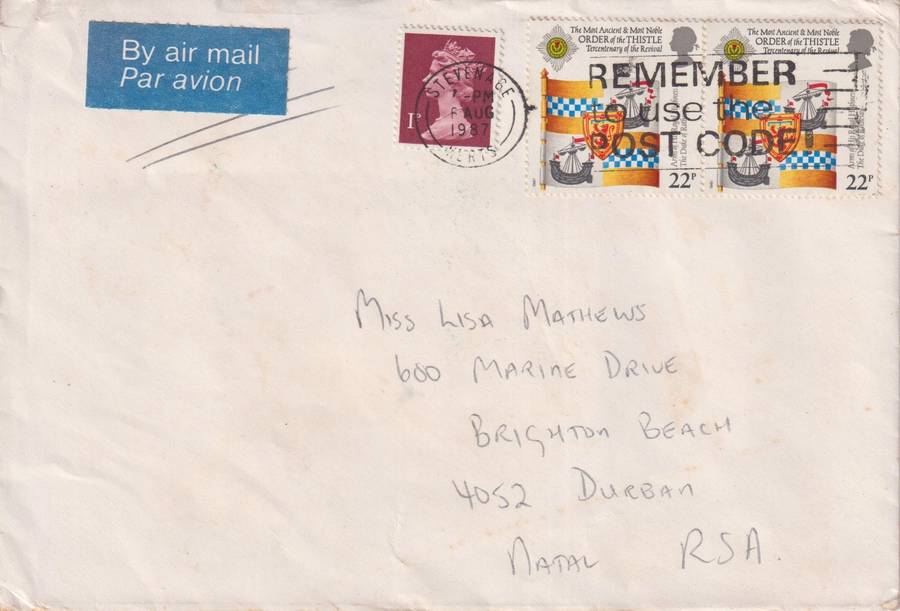 By air mail
Par avion
1P
STEVENAGE
-PM
AUG
1987
HERTS
The Most Ancient & Most Noble
ORDER of the THISTLE
Tercentenary of the Revival
22P
The Most Ancient & Most Noble
ORDER of the THISTLE
Tercentenary of the Revival
22P
REMEMBER
to use the
POST CODE
Miss Lisa Mathews
600 Marine Drive
Brighton Beach
4052 Durban
Natal RSA.